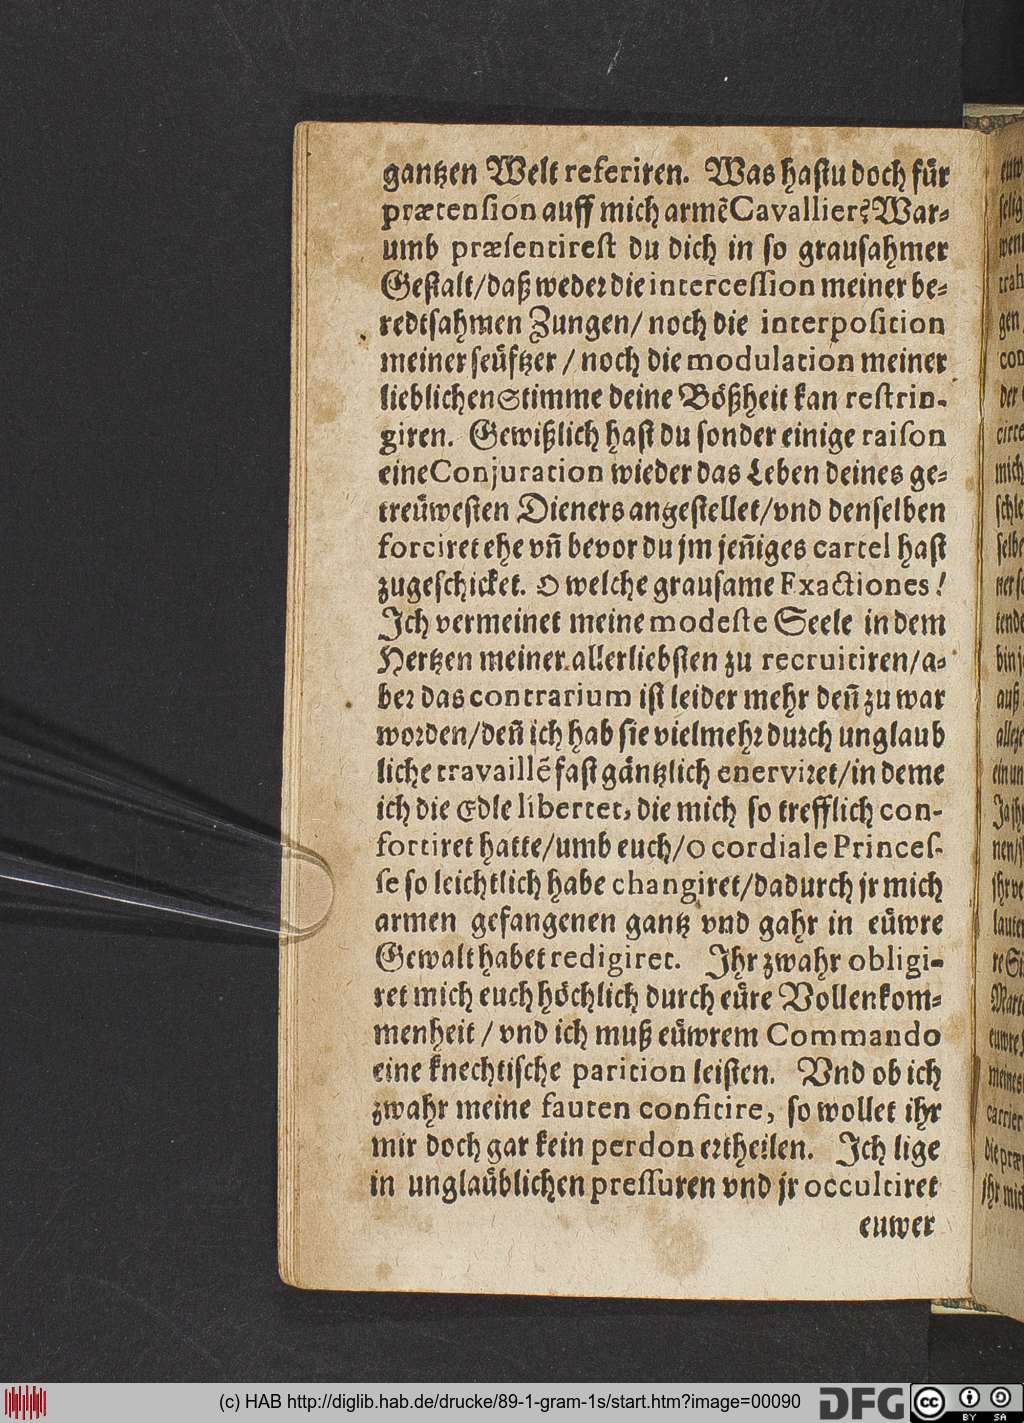 gantzen Welt referiren. Was hastu doch fuͤr
prætension auff mich armẽ Cavallier? War-
umb præsentirest du dich in so grausahmer
Gestalt/daß weder die intercession meiner be-
redtsahmen Zungen/ noch die interposition
meiner seuͤftzer / noch die modulation meiner
lieblichen Stimme deine Boͤßheit kan restrin-
giren. Gewißlich hast du sonder einige raison
eine Conjuration wieder das Leben deines ge-
treuͤwesten Dieners angestellet/vnd denselben
forciret ehe vñ bevor du jm jeñiges cartel hast
zugeschicket. O welche grausame Exactiones!
Ich vermeinet meine modeste Seele in dem
Hertzen meiner allerliebsten zu recruitiren/a-
ber das contrarium ist leider mehr deñ zu war
worden/deñ ich hab sie vielmehr durch unglaub
liche travaillẽ fast gaͤntzlich enerviret/in deme
ich die Edle libertet, die mich so trefflich con-
fortiret hatte/umb euch/o cordiale Princes-
se so leichtlich habe changiret/dadurch jr mich
armen gefangenen gantz vnd gahr in euͤwre
Gewalt habet redigiret. Ihr zwahr obligi-
ret mich euch hoͤchlich durch euͤre Vollenkom-
menheit / vnd ich muß euͤwrem Commando
eine knechtische parition leisten. Vnd ob ich
zwahr meine fauten confitire, so wollet ihr
mir doch gar kein perdon ertheilen. Ich lige
in unglauͤblichen pressuren vnd jr occultiret
euwer
(c) HAB http://diglib.hab.de/drucke/89-1-gram-1s/start.htm?image=00090
DFG
cc BY SA